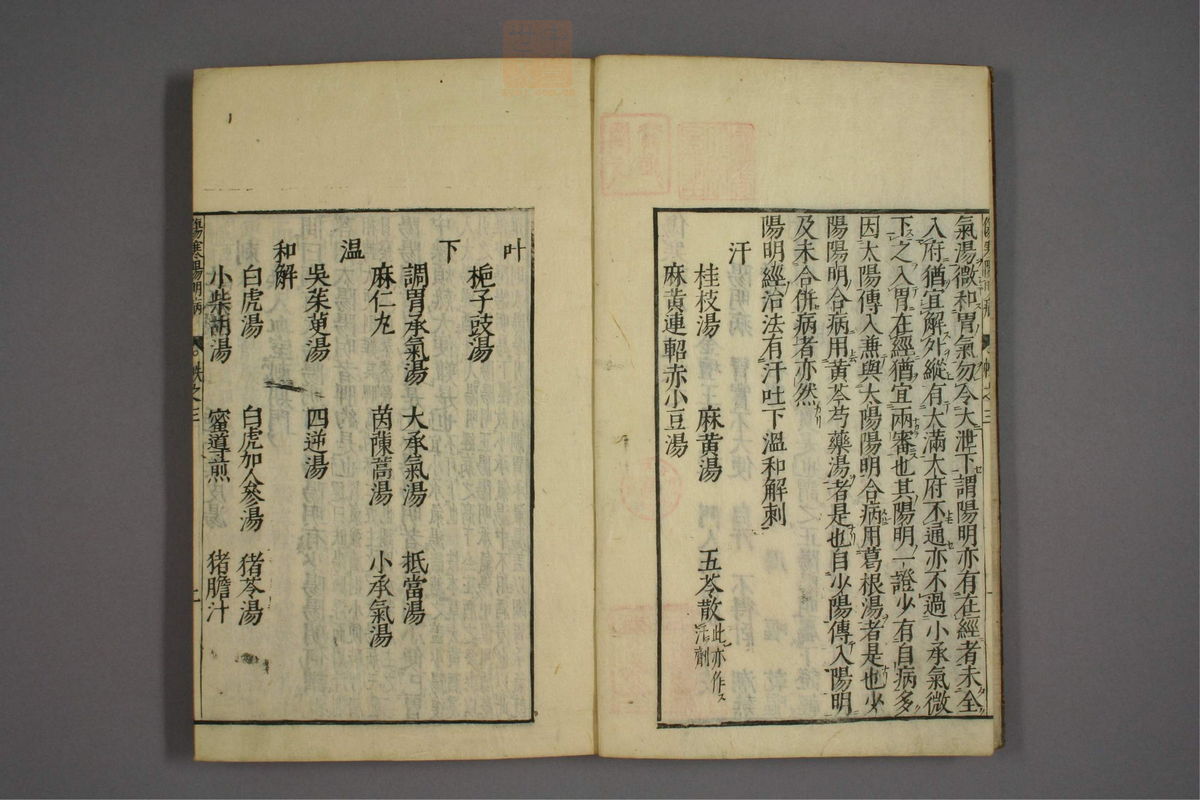 氣湯微和胃氣勿令大泄下謂陽明亦有在經者未全
入府猶宜解外縱有大滿大府不通亦不過小承氣微
下之入胃在經猶宜兩審也其陽明一證少有自病多
因太陽傳入兼與太陽陽明合病用葛根湯者是也少
陽陽明合病用黃芩芍藥湯者是也自少陽傳入陽明
及未合併病者亦然
陽明經治法有汗吐下溫和解刺
汗
桂枝湯 麻黃湯 五苓散 此亦作汗劑
麻黃連軺赤小豆湯
吐
梔子豉湯
下
調胃承氣湯 大承氣湯 抵當湯
麻仁丸 茵蔯蒿湯 小承氣湯
温
吳茱萸湯 四逆湯
和解
白虎湯 白虎加人參湯 猪苓湯
小柴胡湯 蜜導煎 猪膽汁
傷寒陽明病 帙之三 二